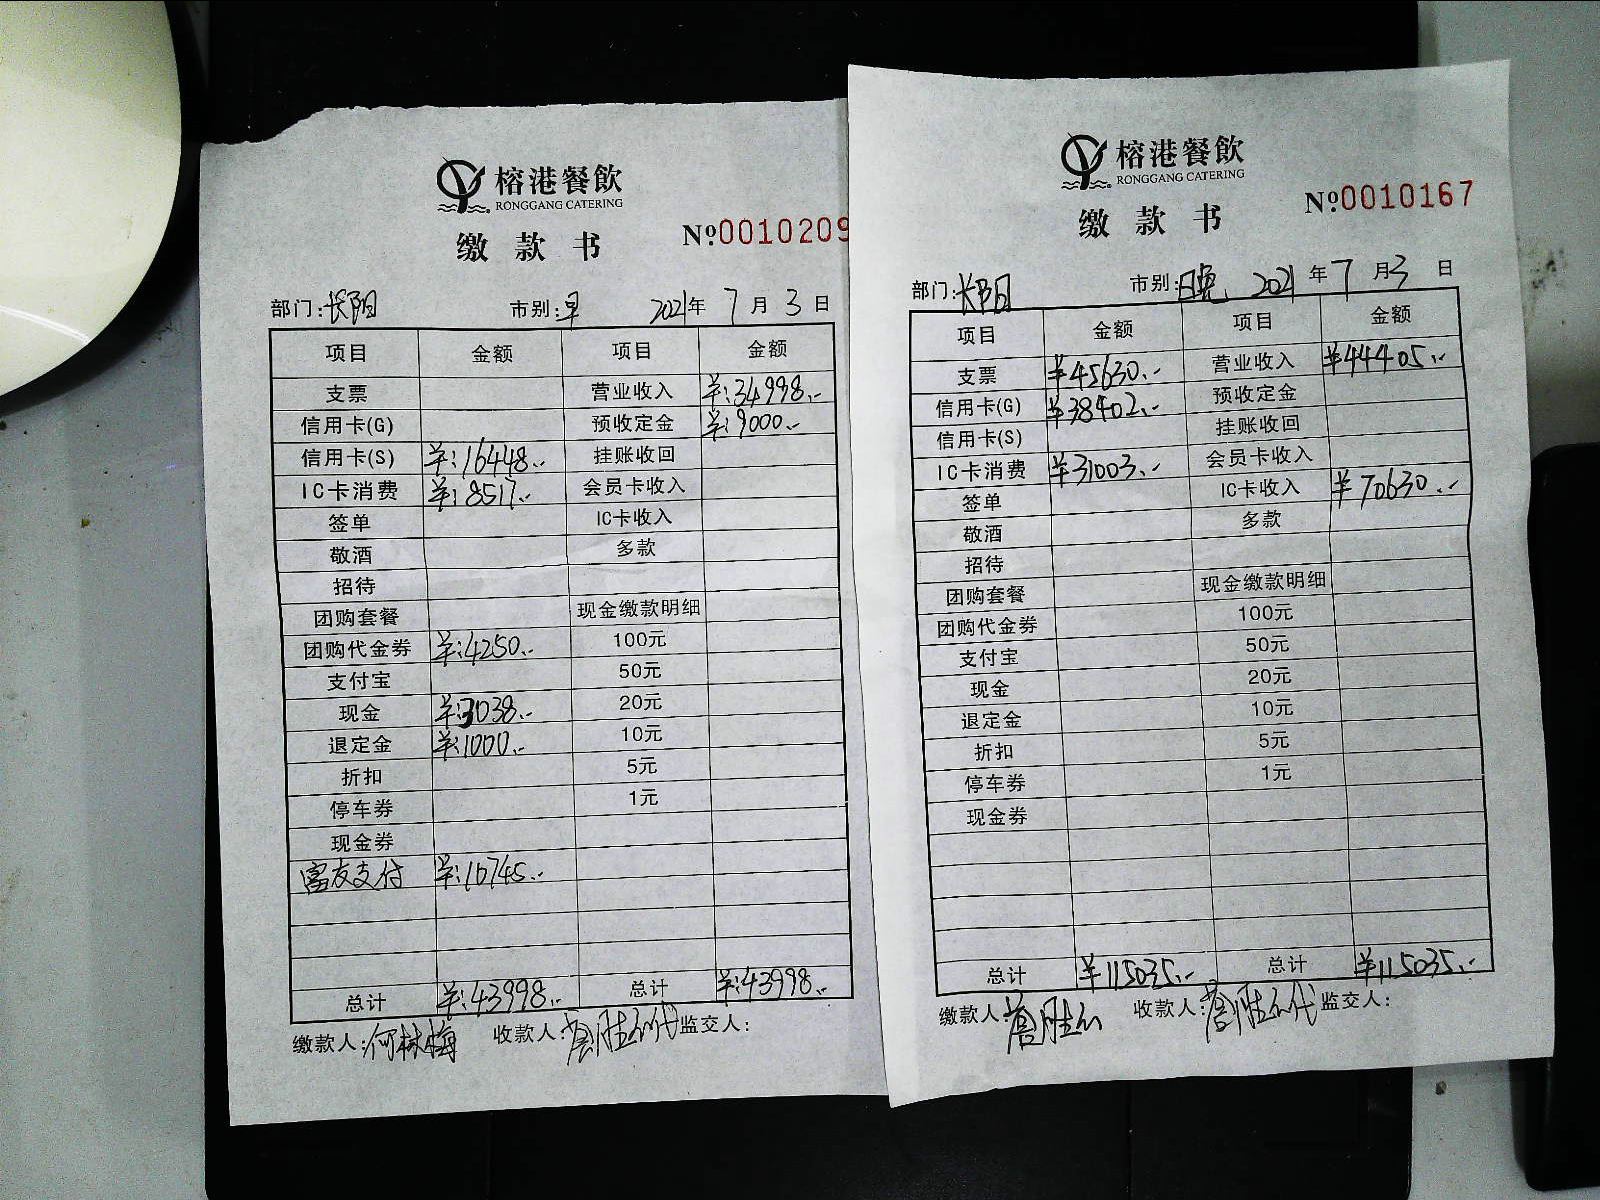 榕港餐飲
RONGGANG CATERING
缴款书
№0010209
部门:长阳 市别:早 2021年7月3日
项目 金额 项目 金额
支票 营业收入 ¥:34998.--
信用卡(G) 预收定金 ¥:9000.--
信用卡(S) ¥:16448.-- 挂账收回
IC卡消费 ¥:8517.-- 会员卡收入
签单 IC卡收入
敬酒 多款
招待
团购套餐 现金缴款明细
团购代金券 ¥:4250.-- 100元
支付宝 50元
现金 ¥:3038.-- 20元
退定金 ¥:1000.-- 10元
折扣 5元
停车券 1元
现金券
富友支付 ¥:10745.--
总计 ¥:43998.-- 总计 ¥:43998.--
缴款人:何林梅 收款人: 代 监交人:
榕港餐飲
RONGGANG CATERING
缴款书
№0010167
部门:长阳 市别:晚 2021年7月3日
项目 金额 项目 金额
支票 ¥45630.-- 营业收入 ¥44405.--
信用卡(G) ¥38402.-- 预收定金
信用卡(S) 挂账收回
IC卡消费 ¥31003.-- 会员卡收入
签单 IC卡收入 ¥70630.--
敬酒 多款
招待
团购套餐 现金缴款明细
团购代金券 100元
支付宝 50元
现金 20元
退定金 10元
折扣 5元
停车券 1元
现金券
总计 ¥115035.-- 总计 ¥115035.--
缴款人: 收款人: 代 监交人: